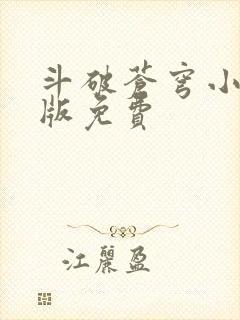 斗破蒼穹小
版免費
江麗盈